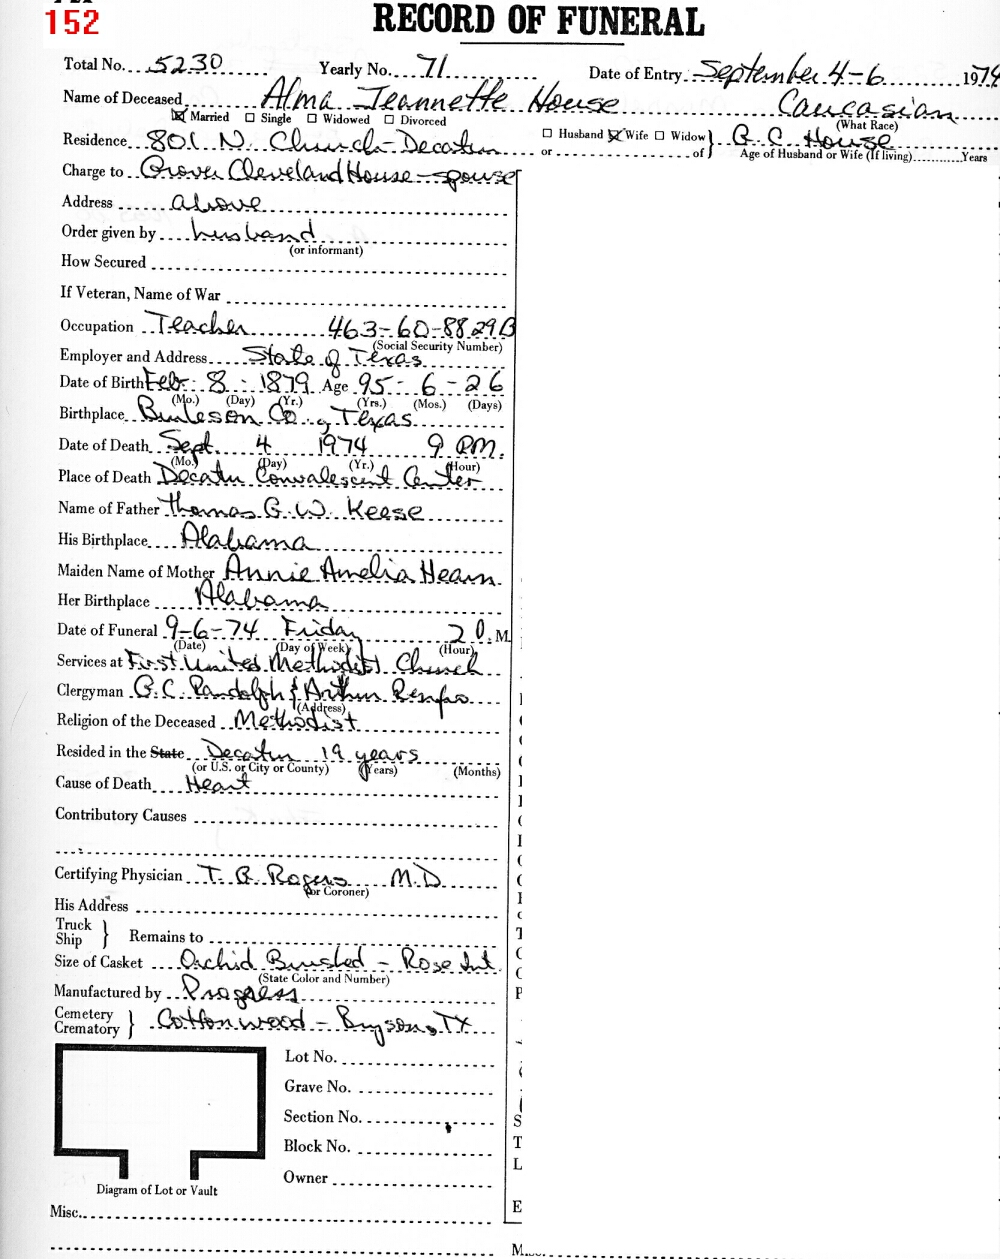 152
RECORD OF FUNERAL
Total No. 5230 Yearly No. 71 Date of Entry September 4-6 1974
Name of Deceased Alma Jeannette House Caucasian
☒ Married ☐ Single ☐ Widowed ☐ Divorced (What Race)
Residence 801 N. Church - Decatur ☐ Husband ☒ Wife ☐ Widow } G. C. House
or of } Age of Husband or Wife (If living) Years
Charge to Grover Cleveland House - spouse
Address above
Order given by husband
(or informant)
How Secured
If Veteran, Name of War
Occupation Teacher 463-60-8829B
(Social Security Number)
Employer and Address State of Texas
Date of Birth Feb. 8 1879 Age 95 - 6 - 26
(Mo.) (Day) (Yr.) (Yrs.) (Mos.) (Days)
Birthplace Burleson Co., Texas
Date of Death Sept. 4 1974 9 P.M.
(Mo.) (Day) (Yr.) (Hour)
Place of Death Decatur Convalescent Center
Name of Father Thomas G. W. Keese
His Birthplace Alabama
Maiden Name of Mother Annie Amelia Hearn
Her Birthplace Alabama
Date of Funeral 9-6-74 Friday 2 P.M.
(Date) (Day of Week) (Hour)
Services at First United Methodist Church
Clergyman G.C. Randolph & Arthur Renfro
(Address)
Religion of the Deceased Methodist
Resided in the State Decatur 19 years
(or U.S. or City or County) (Years) (Months)
Cause of Death Heart
Contributory Causes
Certifying Physician T. G. Rogers M.D.
(or Coroner)
His Address
Truck
Ship } Remains to
Size of Casket Orchid Brushed - Rose Int.
(State Color and Number)
Manufactured by Progress
Cemetery
Crematory } Cottonwood - Bryson, TX
Lot No.
Grave No.
Section No.
Block No.
Owner
Diagram of Lot or Vault
Misc.